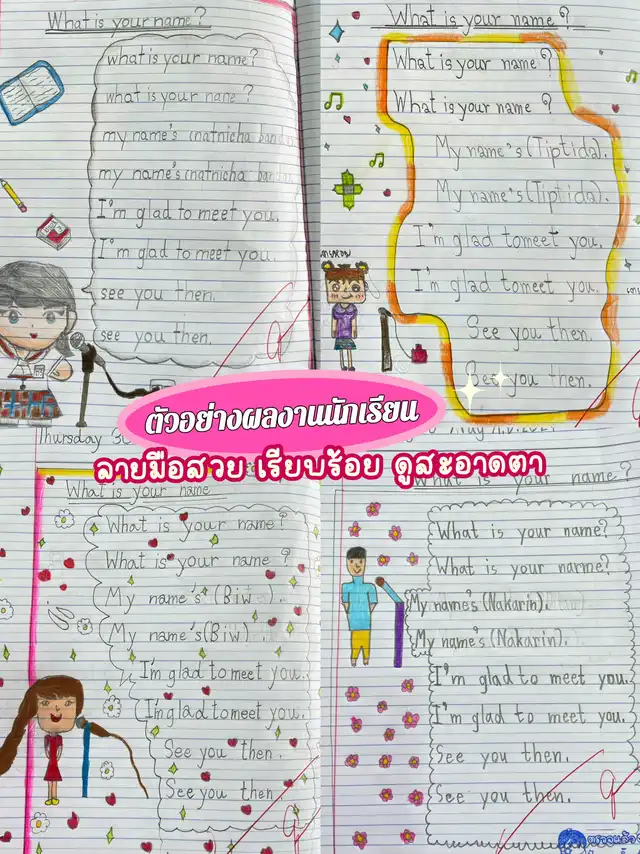 What is your name?
what is your name?
what is your nane?
my name's (natnicha
my name's (natnicha
I'm glad to meet you.
I'm glad to meet you.
see you then.
see you then.
What is your name?
What is your name?
What is your name?
My name's (Tiptida).
My name's (Tiptida).
I'm glad tomeet you.
I'm glad tomeet you.
See you then.
See you then.
ตัวอย่างผลงานนักเรียน
ลายมือสวย เรียบร้อย ดูสะอาดตา
Thursday
What is your name
What is your name?
What is your name?
My name's (Biw).
My name's (Biw).
I'm glad to meet you.
I'm glad tomeet you.
See you then.
See you then
What is your name?
What is your name?
What is your narme?
My name's (Nakarin).
My name's (Nakarin).
I'm glad to meet you.
I'm glad to meet you.
See you then.
See you then.
ตรวจแล้ว